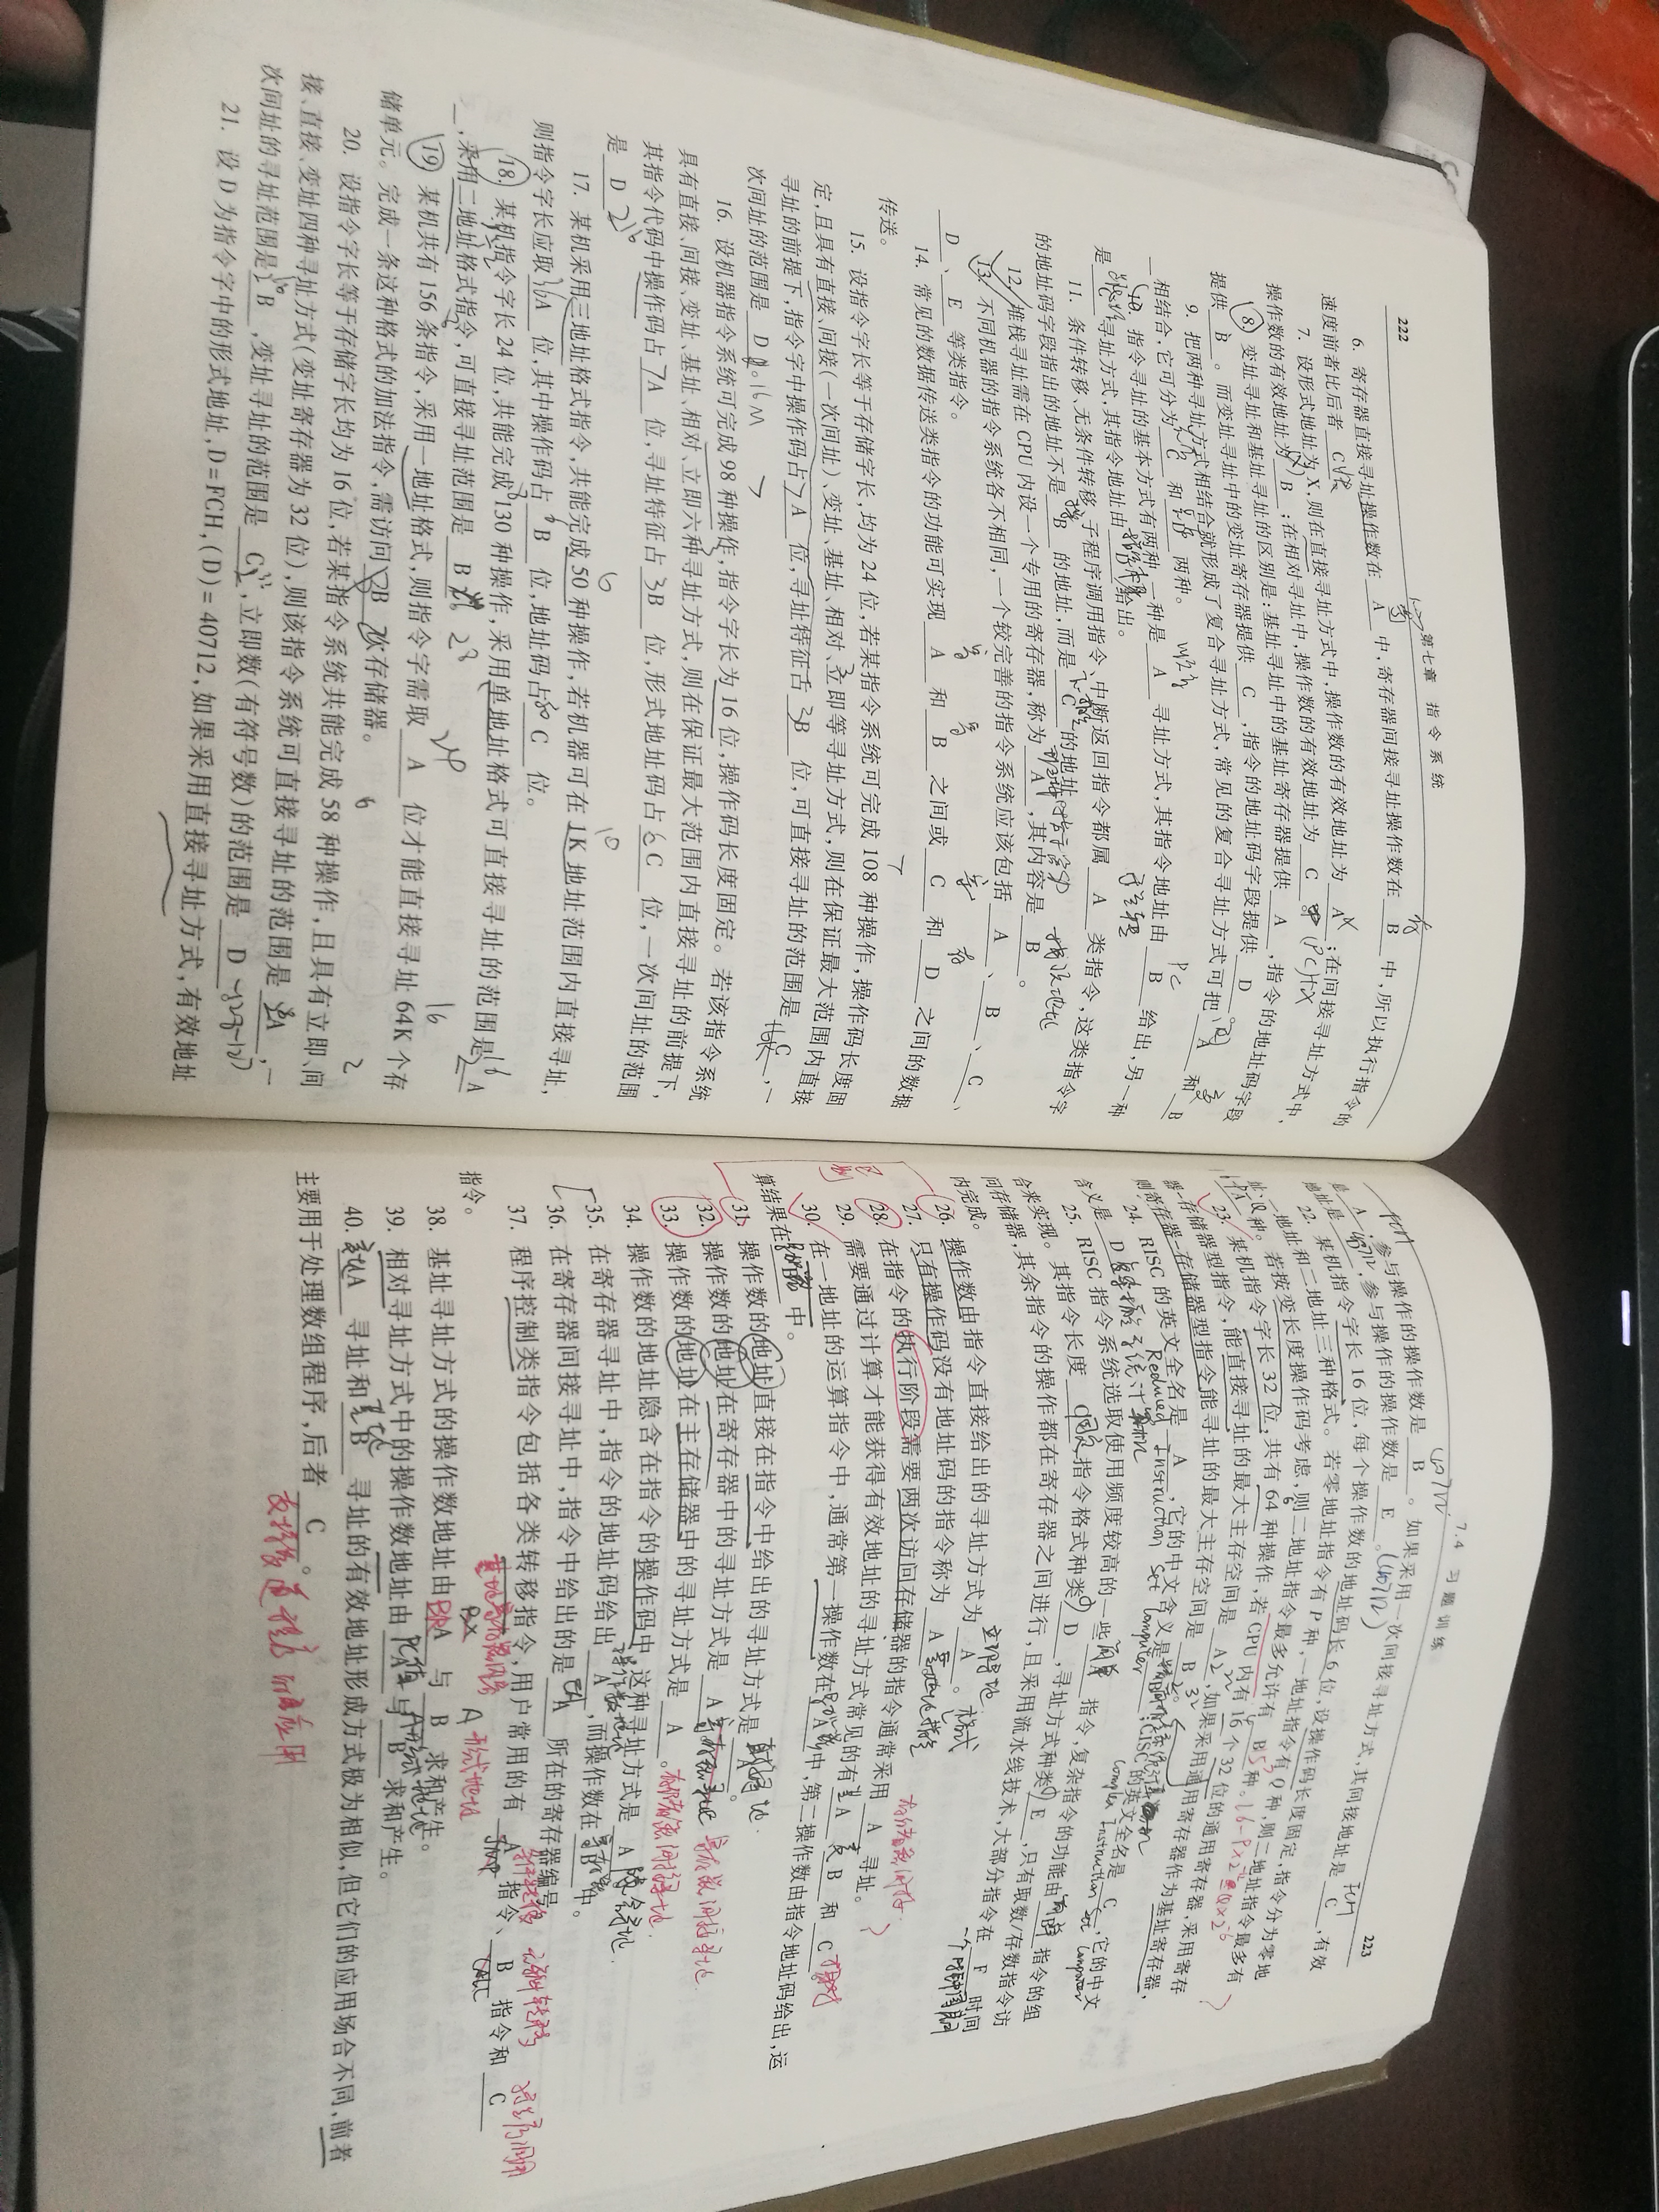 222
第七章 指令系统
6. 寄存器直接寻址操作数在 A 中,寄存器间接寻址操作数在 B 中,所以执行指令的
速度前者比后者 C 。
7. 设形式地址为X,则在直接寻址方式中,操作数的有效地址为 A ;在间接寻址方式中,
操作数的有效地址为 B ;在相对寻址中,操作数的有效地址为 C 。 (PC)+X
8. 变址寻址和基址寻址的区别是:基址寻址中的基址寄存器提供 A ,指令的地址码字段
提供 B 。而变址寻址中的变址寄存器提供 C ,指令的地址码字段提供 D 。
9. 把两种寻址方式相结合就形成了复合寻址方式,常见的复合寻址方式可把 A 和 B
相结合,它可分为 C 和 两种。
10. 指令寻址的基本方式有两种,一种是 A 寻址方式,其指令地址由 B 给出,另一种
PC
是 C 寻址方式,其指令地址由 D 给出。
11. 条件转移、无条件转移、子程序调用指令、中断返回指令都属 A 类指令,这类指令字
的地址码字段指出的地址不是 B 的地址,而是 C 的地址。
12. 堆栈寻址需在CPU内设一个专用的寄存器,称为 A ,其内容是 B 。
13. 不同机器的指令系统各不相同,一个较完善的指令系统应该包括 A 、 B 、 C 、
D 、 E 等类指令。
14. 常见的数据传送类指令的功能可实现 A 和 B 之间或 C 和 D 之间的数据
传送。
15. 设指令字长等于存储字长,均为24位,若某指令系统可完成108种操作,操作码长度固
定,且具有直接、间接(一次间址)、变址、基址、相对、立即等寻址方式,则在保证最大范围内直接
寻址的前提下,指令字中操作码占 7 A 位,寻址特征占 3 B 位,可直接寻址的范围是 C ,一
次间址的范围是 D 。 16M
16. 设机器指令系统可完成98种操作,指令字长为16位,操作码长度固定。若该指令系统
具有直接、间接、变址、基址、相对、立即六种寻址方式,则在保证最大范围内直接寻址的前提下,
其指令代码中操作码占 7 A 位,寻址特征占 3 B 位,形式地址码占 6 C 位,一次间址的范围
是 D 。
17. 某机采用三地址格式指令,共能完成50种操作,若机器可在1K地址范围内直接寻址,
则指令字长应取 A 位,其中操作码占 B 位,地址码占 C 位。
18. 某机指令字长24位,共能完成130种操作,采用单地址格式可直接寻址的范围是 A
,采用二地址格式指令,可直接寻址范围是 B 。
19. 某机共有156条指令,采用一地址格式,则指令字需取 A 位才能直接寻址64K个存
储单元。完成一条这种格式的加法指令,需访问 B 次存储器。
20. 设指令字长等于存储字长均为16位,若某指令系统共能完成58种操作,且具有立即、间
接、直接、变址四种寻址方式(变址寄存器为32位),则该指令系统可直接寻址的范围是 A ,一
次间址的寻址范围是 B ,变址寻址的范围是 C ,立即数(有符号数)的范围是 D 。
21. 设D为指令字中的形式地址,D=FCH,(D)=40712,如果采用直接寻址方式,有效地址
7.4 习题训练
223
是 A ,参与操作的操作数是 B 。如果采用一次间接寻址方式,其间接地址是 C ,有效
地址是 ,参与操作的操作数是 E 。 (40712)
22. 某机指令字长16位,每个操作数的地址码长6位,设操作码长度固定,指令分为零地
址、一地址和二地址三种格式。若零地址指令有P种,一地址指令有Q种,则二地址指令最多有
A 种。若按变长度操作码考虑,则二地址指令最多允许有 B 种。
23. 某机指令字长32位,共有64种操作,若CPU内有16个32位的通用寄存器,采用寄存
器-存储器型指令,能直接寻址的最大主存空间是 A ,如果采用通用寄存器作为基址寄存器,
则寄存器-存储器型指令能寻址的最大主存空间是 B 。
24. RISC的英文全名是 A ,它的中文含义是 ;CISC的英文全名是 C ,它的中文
Reduced Instruction Set Computer
Complex Instruction Set Computer
含义是 D 。
25. RISC指令系统选取使用频度较高的一些 简单 指令,复杂指令的功能由 简单 指令的组
合来实现。其指令长度 C 指令格式种类 D ,寻址方式种类 E ,只有取数/存数指令访
问存储器,其余指令的操作都在寄存器之间进行,且采用流水线技术,大部分指令在 F 时间
内完成。
一个时钟周期
26. 操作数由指令直接给出的寻址方式为 A 。
27. 只有操作码没有地址码的指令称为 A 格式
28. 在指令的执行阶段需要两次访问存储器的指令通常采用 A 寻址。
存储器间接
29. 需要通过计算才能获得有效地址的寻址方式常见的有 A 、 B 和 C
30. 在一地址的运算指令中,通常第一操作数在 A 中,第二操作数由指令地址码给出,运
算结果在 中。
31. 操作数的地址直接在指令中给出的寻址方式是 A 。
32. 操作数的地址在寄存器中的寻址方式是 A 寄存器间接寻址
33. 操作数的地址在主存储器中的寻址方式是 A 。 存储器间接寻址
34. 操作数的地址隐含在指令的操作码中,这种寻址方式是 A 隐含寻址.
35. 在寄存器寻址中,指令的地址码给出 A ,而操作数在 B 中。
36. 在寄存器间接寻址中,指令中给出的是 A 所在的寄存器编号
37. 程序控制类指令包括各类转移指令,用户常用的有 A 指令、 B 指令和 C
指令。
JMP
CALL
38. 基址寻址方式的操作数地址由 A 与 B 求和产生。
A 形式地址
39. 相对寻址方式中的操作数地址由 A 与 B 求和产生。
40. A 寻址和 B 寻址的有效地址形成方式极为相似,但它们的应用场合不同,前者
主要用于处理数组程序,后者 C 。